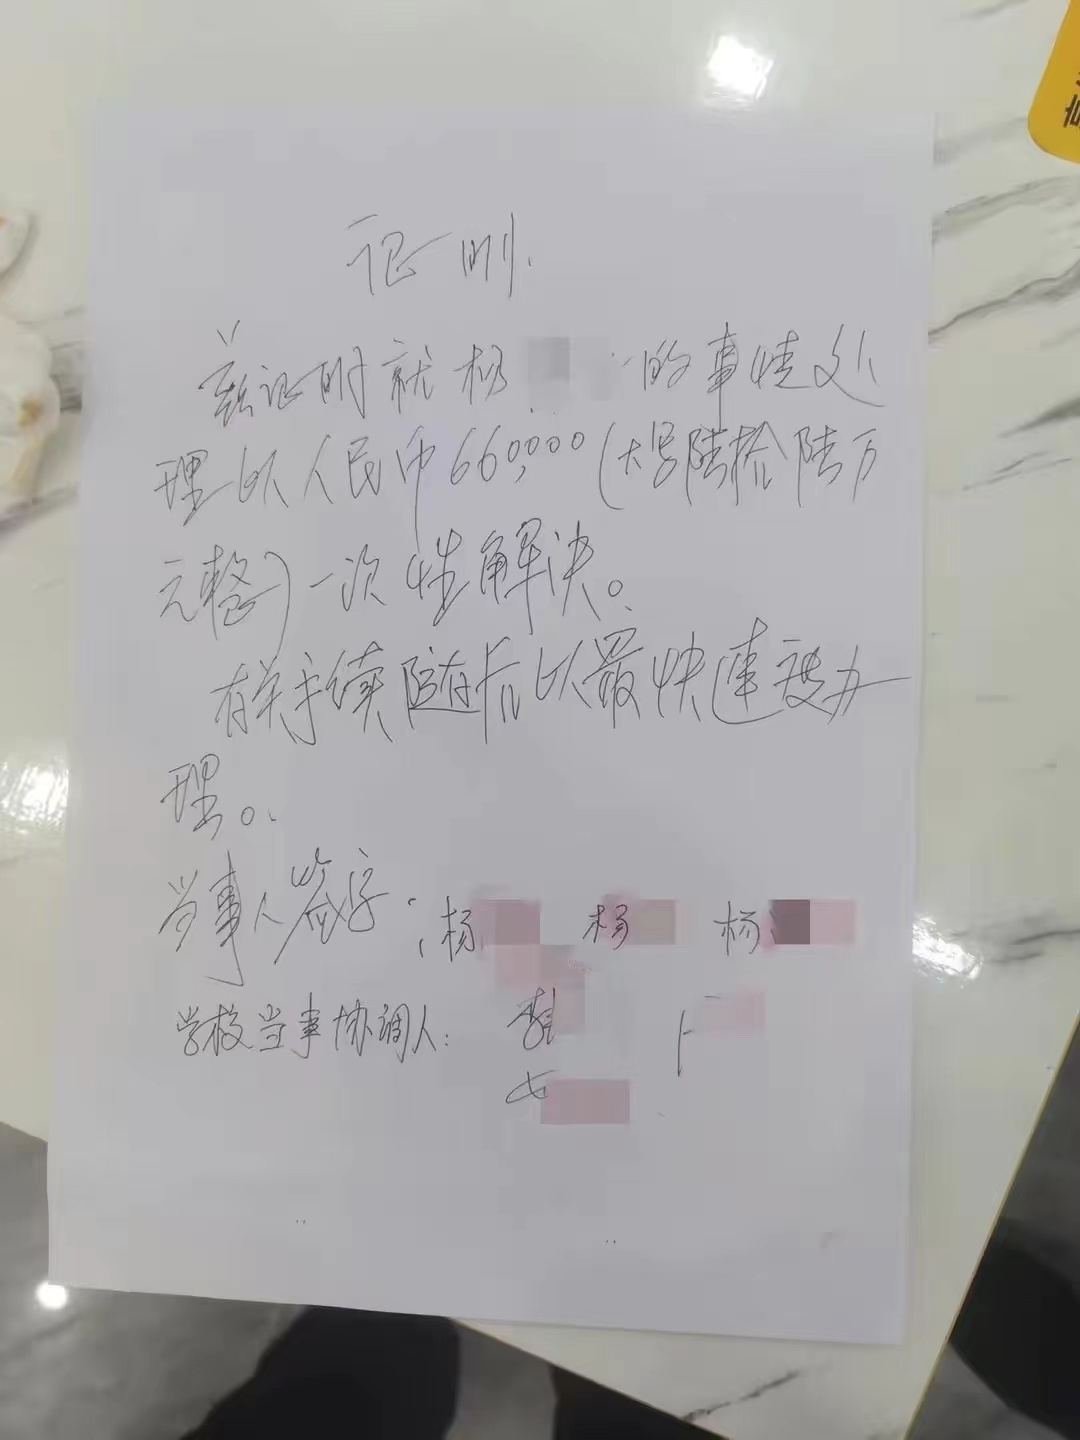 证明
兹证明就杨 的事情处
理以人民币660,000(大写陆拾陆万
元整)一次性解决。
有关手续随后以最快速度办
理。
当事人签字: 杨 杨 杨
学校当事协调人: